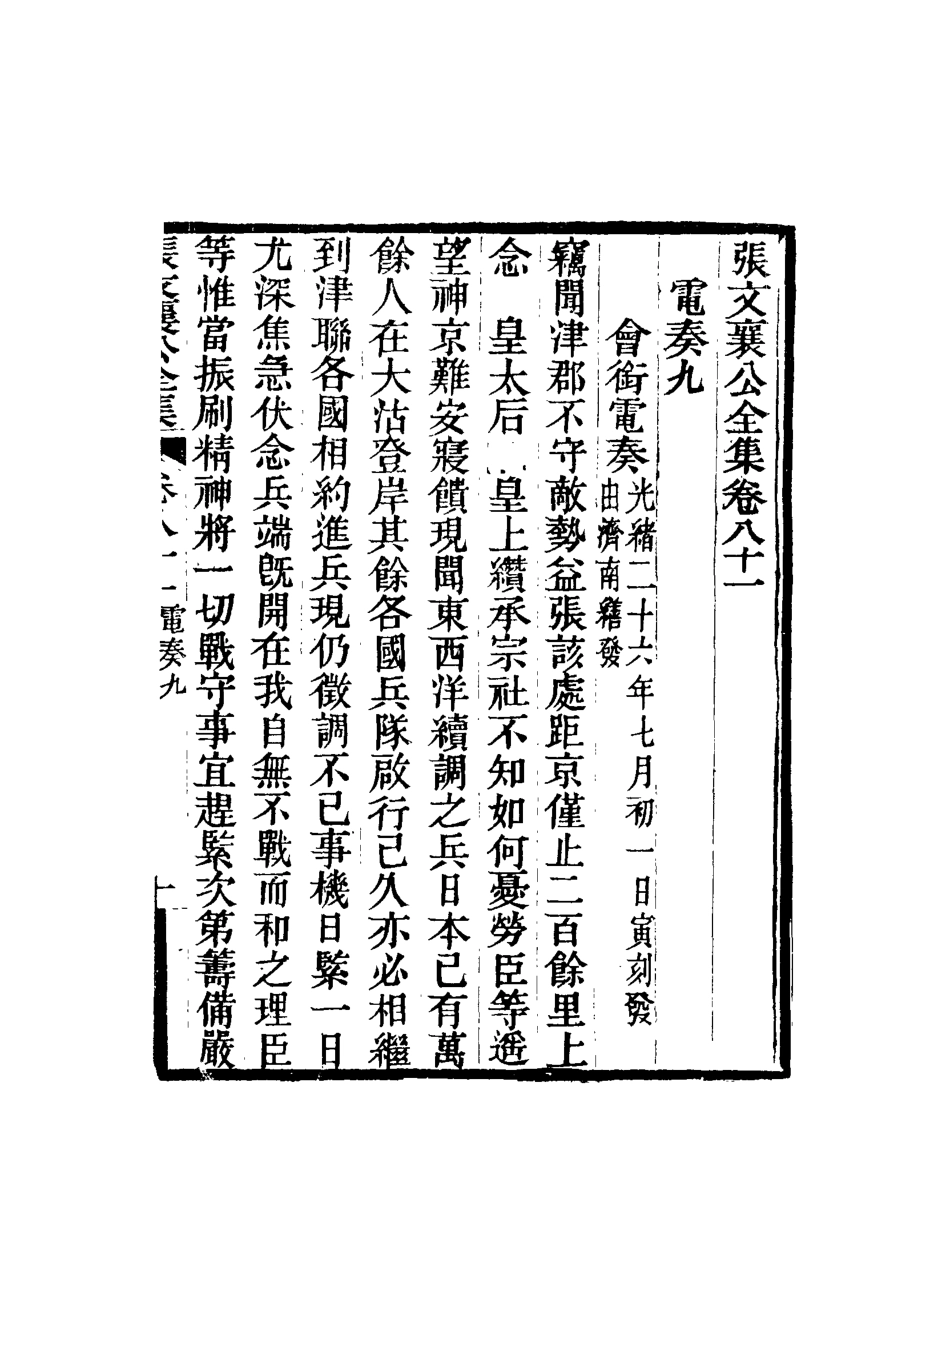 張文襄公全集卷八十一
電奏九
會銜電奏光緒二十六年七月初一日寅刻發
由濟南繕發
竊聞津郡不守敵勢益張該處距京僅止二百餘里上
念　皇太后　皇上纘承宗社不知如何憂勞臣等遙
望神京難安寢饋現聞東西洋續調之兵日本已有萬
餘人在大沽登岸其餘各國兵隊啟行已久亦必相繼
到津聯各國相約進兵現仍徵調不已事機日緊一日
尤深焦急伏念兵端既開在我自無不戰而和之理臣
等惟當振刷精神將一切戰守事宜趕緊次第籌備嚴
張文襄公全集　卷八十一電奏九　一